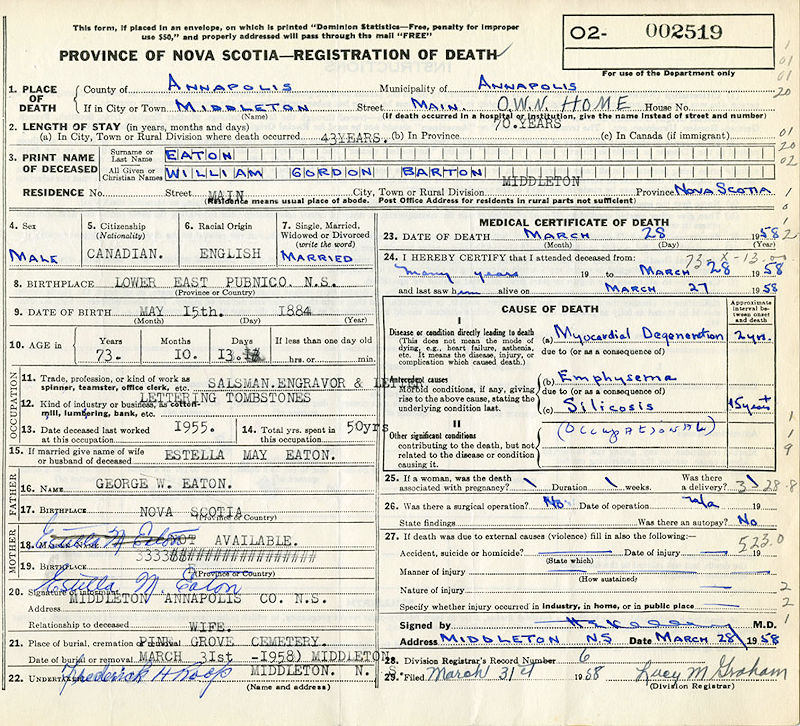 This form, if placed in an envelope, on which is printed "Dominion Statistics—Free, penalty for improper
use $50," and properly addressed will pass through the mail "FREE"
PROVINCE OF NOVA SCOTIA—REGISTRATION OF DEATH
O2- 002519
For use of the Department only
1. PLACE OF DEATH
County of ANNAPOLIS Municipality of ANNAPOLIS
If in City or Town MIDDLETON Street MAIN. OWN HOME House No.
(Name) (If death occurred in a hospital or institution, give the name instead of street and number)
2. LENGTH OF STAY (in years, months and days) 70.YEARS
(a) In City, Town or Rural Division where death occurred 43YEARS. (b) In Province (c) In Canada (if immigrant)
3. PRINT NAME OF DECEASED
Surname or Last Name EATON
All Given or Christian Names WILLIAM GORDON BARTON
MIDDLETON
RESIDENCE No. Street MAIN City, Town or Rural Division Province NOVA SCOTIA
(Residence means usual place of abode. Post Office Address for residents in rural parts not sufficient)
4. Sex MALE
5. Citizenship (Nationality) CANADIAN.
6. Racial Origin ENGLISH
7. Single, Married, Widowed or Divorced (write the word) MARRIED
8. BIRTHPLACE LOWER EAST PUBNICO. N.S.
(Province or Country)
9. DATE OF BIRTH MAY 15th. 1884
(Month) (Day) (Year)
10. AGE in Years Months Days If less than one day old
73. 10. 13. hrs. or min.
OCCUPATION
11. Trade, profession, or kind of work as spinner, teamster, office clerk, etc. SALSMAN.ENGRAVOR &
LETTERING TOMBSTONES
12. Kind of industry or business, as cotton-mill, lumbering, bank, etc.
13. Date deceased last worked at this occupation 1955.
14. Total yrs. spent in this occupation 50yrs
15. If married give name of wife or husband of deceased ESTELLA MAY EATON.
FATHER
16. NAME GEORGE W. EATON.
17. BIRTHPLACE NOVA SCOTIA
(Province & Country)
MOTHER
18. MAIDEN NAME NOT AVAILABLE.
19. BIRTHPLACE 333338##################
(Province or Country)
20. Signature of informant Estella M. Eaton
Address MIDDLETON ANNAPOLIS CO. N.S.
Relationship to deceased WIFE.
21. Place of burial, cremation or removal PINE GROVE CEMETERY.
Date of burial or removal MARCH 31st -1958) MIDDLETON
22. UNDERTAKER Frederick H Roop MIDDLETON. N.
(Name and address)
MEDICAL CERTIFICATE OF DEATH
23. DATE OF DEATH MARCH 28 1958
(Month) (Day) (Year)
24. I HEREBY CERTIFY that I attended deceased from: 73-X-13.00
many years 19 to MARCH 28 1958
and last saw him alive on MARCH 27 1958
CAUSE OF DEATH
Approximate interval between onset and death
I
Disease or condition directly leading to death
(This does not mean the mode of dying, e.g., heart failure, asthenia, etc. It means the disease, injury, or complication which caused death.)
(a) Myocardial Degeneration 2 yrs.
due to (or as a consequence of)
Antecedent causes
Morbid conditions, if any, giving rise to the above cause, stating the underlying condition last.
(b) Emphysema
due to (or as a consequence of)
(c) Silicosis 15 years+
II
Other significant conditions
contributing to the death, but not related to the disease or condition causing it.
(OCCUPATIONAL)
25. If a woman, was the death associated with pregnancy? Duration weeks. Was there a delivery? 3-28-8
26. Was there a surgical operation? No Date of operation n/a 19
State findings Was there an autopsy? No
27. If death was due to external causes (violence) fill in also the following:— 523.0
Accident, suicide or homicide? Date of injury 19
(State which)
Manner of injury
(How sustained)
Nature of injury
Specify whether injury occurred in industry, in home, or in public place
Signed by M.D.
Address MIDDLETON NS Date MARCH 28 1958
28. Division Registrar's Record Number 6
29. Filed March 31 1958 Lucy M Graham
(Division Registrar)